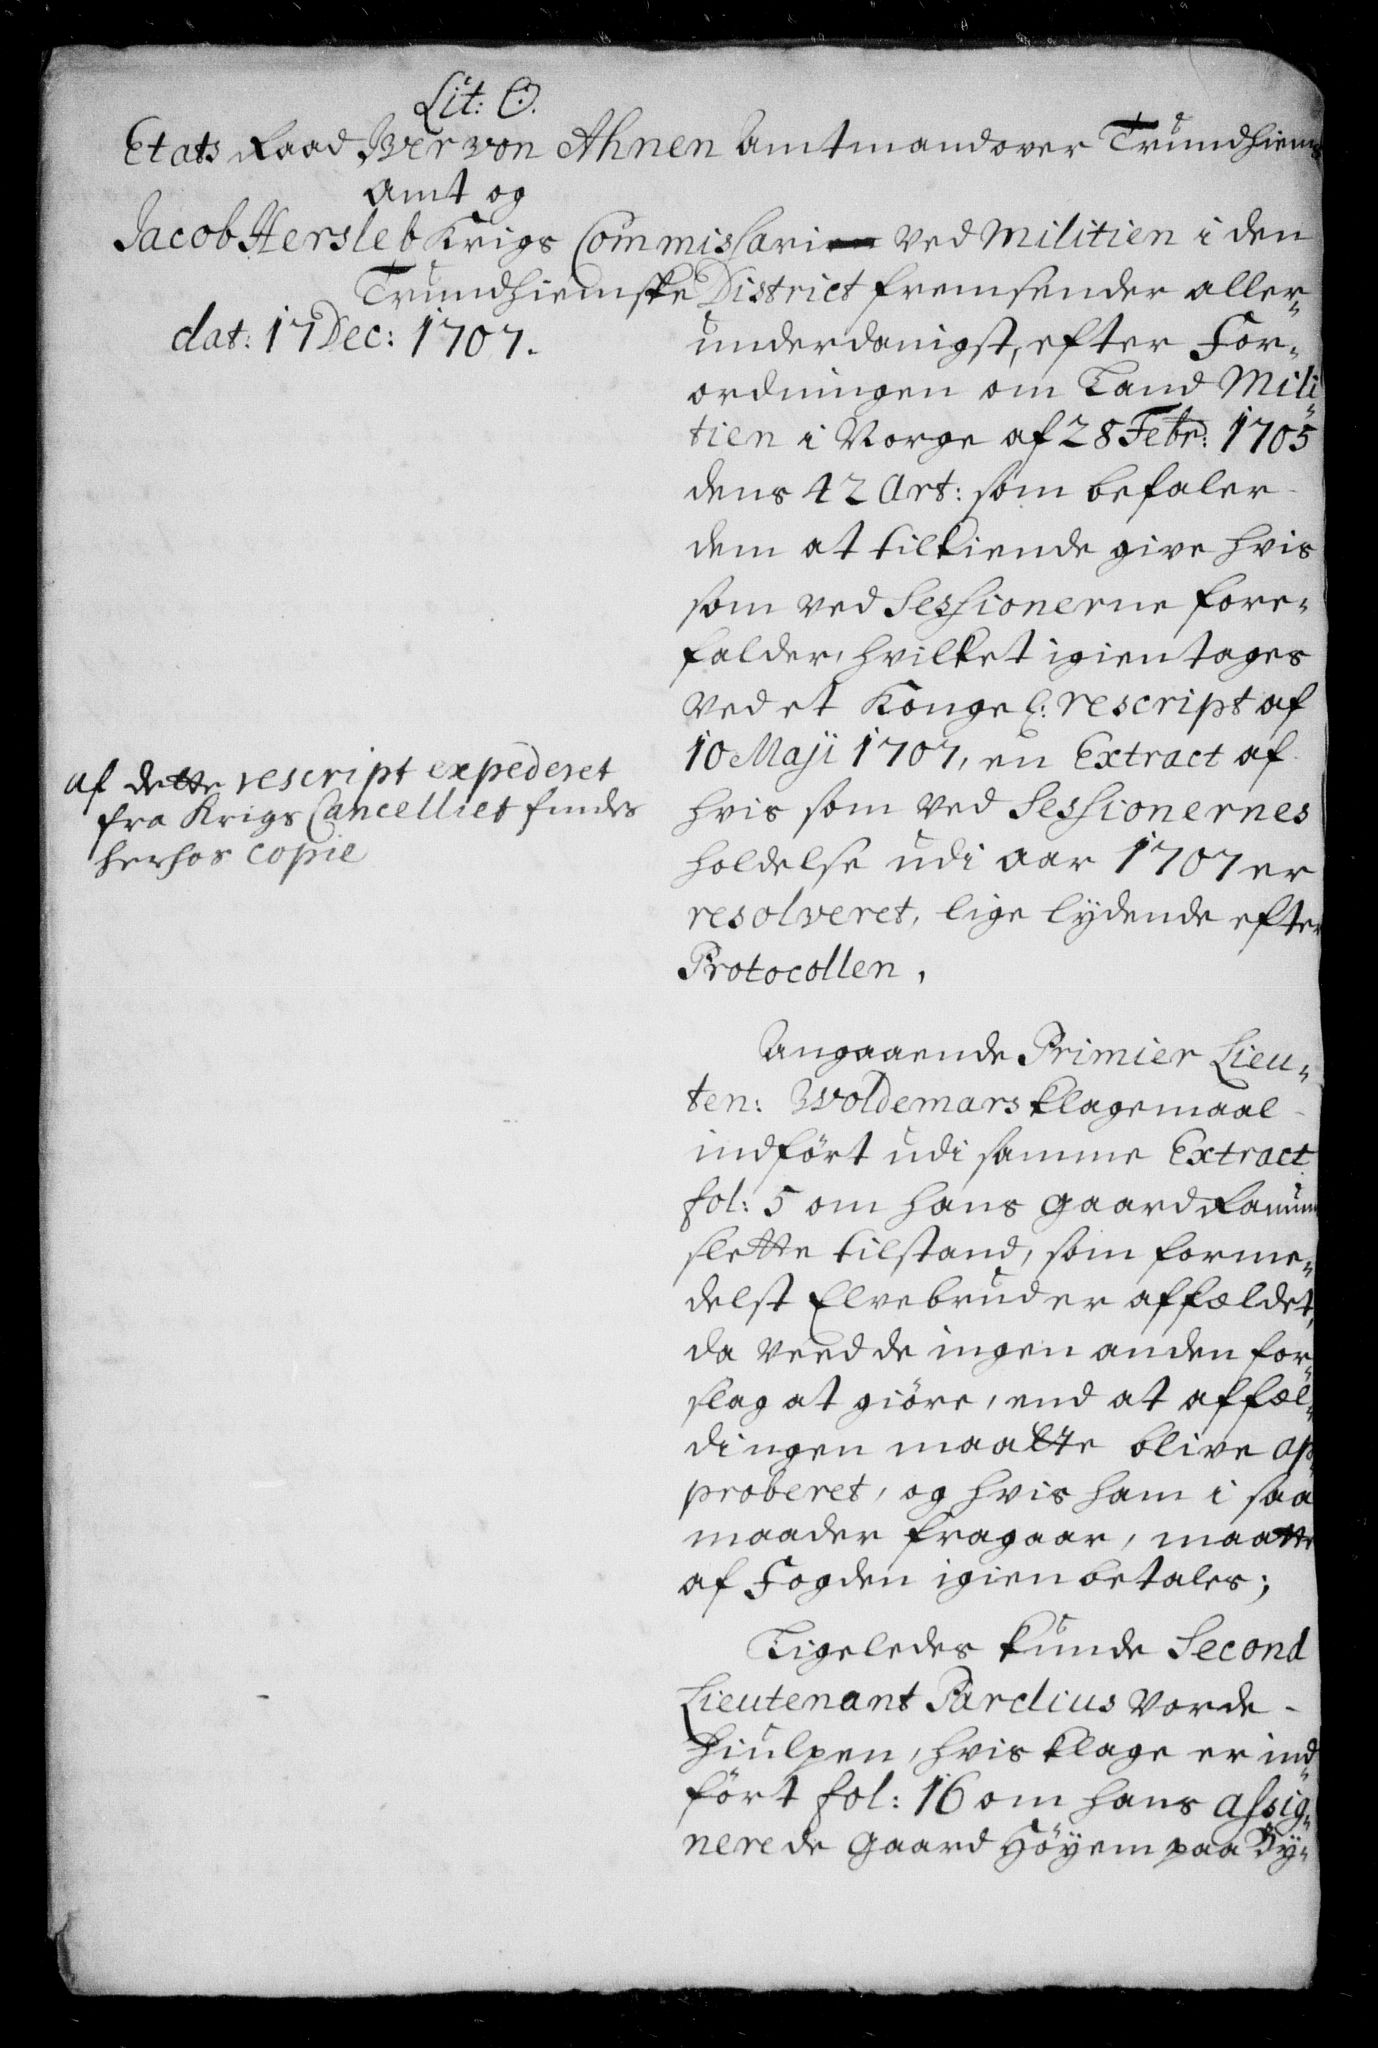 Lit: O.
Etats Raad Iver von Ahnen Amtmand over Trundhiems
Amt og
Jacob Hersleb Krigs Commissari ved Militien i den
Trundhiemske District fremsender aller-
dat: 17 Dec: 1707.
underdanigst, efter For-
ordningen om Land Mili-
tien i Norge af 28 Febr: 1705
dens 42 Art: som befaler
dem at tilkiende give hvis
som ved Sessionerne fore-
falder, hvilket igientages
ved et Kongel: rescript af
10 Maji 1707, en Extract af
af dette rescript expederet
fra Krigs Cancelliet findes
herhos copie
hvis som ved Sessionernes
holdelse udi aar 1707 er
resolveret, lige lydende efter
Protocollen,
Angaaende Primier Lieu-
ten: Woldemars klagemaal
indført udi samme Extract
fol: 5 om hans gaard Ranum
slette tilstand, som forme-
delst Elvebrud er affældet,
da veed de ingen anden for-
slag at giöre, end at affæl-
dingen maatte blive ap-
proberet, og hvis ham i saa
maader fragaar, maatte
af Fogden igien betales;
Ligeledes kunde Second
Lieutenant Parelius vorde
hiulpen, hvis klage er ind-
fört fol: 16 om hans assig-
nerede gaard Höyem paa By-